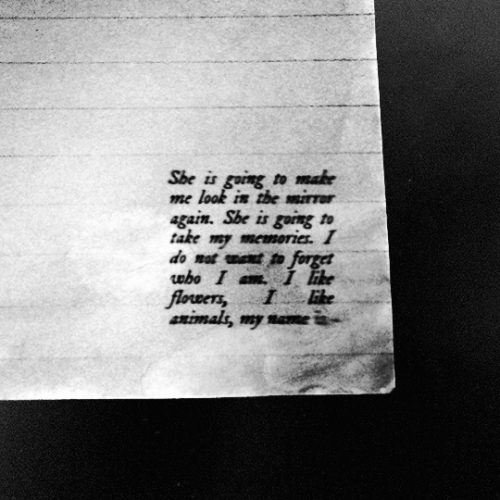 She is going to make
me look in the mirror
again. She is going to
take my memories. I
do not want to forget
who I am. I like
flowers, I like
animals, my name is